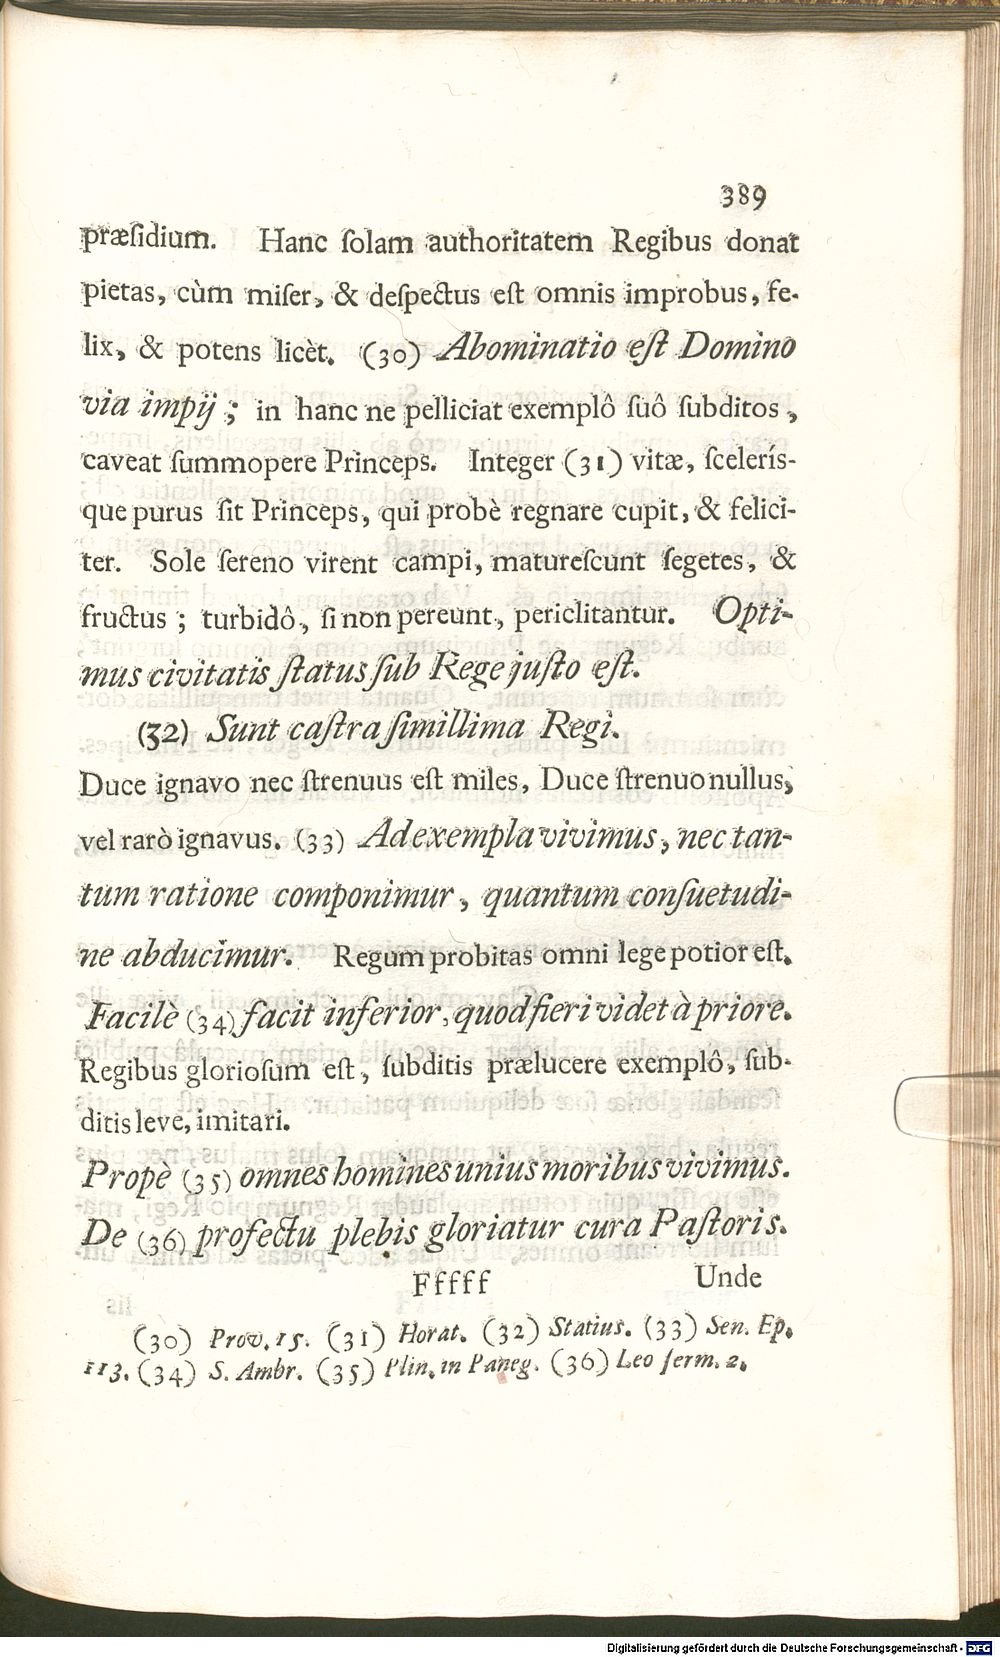 389
præſidium. Hanc ſolam authoritatem Regibus donat
pietas, cùm miſer, & deſpectus eſt omnis improbus, fe-
lix, & potens licèt. (30) Abominatio eſt Domino
via impij; in hanc ne pelliciat exemplô ſuô ſubditos,
caveat ſummopere Princeps. Integer (31) vitæ, ſcelerís-
que purus ſit Princeps, qui probè regnare cupit, & felici-
ter. Sole ſereno virent campi, matureſcunt ſegetes, &
fructus; turbidô, ſi non pereunt, periclitantur. Opti-
mus civitatis ſtatus ſub Rege juſto eſt.
(32) Sunt caſtra ſimillima Regi.
Duce ignavo nec ſtrenuus eſt miles, Duce ſtrenuo nullus,
vel rarò ignavus. (33) Ad exempla vivimus, nec tan-
tum ratione componimur, quantum conſuetudi-
ne abducimur. Regum probitas omni lege potior eſt.
Facilè (34) facit inferior, quod fieri videt à priore.
Regibus glorioſum eſt, ſubditis prælucere exemplô, ſub-
ditis leve, imitari.
Propè (35) omnes homines unius moribus vivimus.
De (36) profectu plebis gloriatur cura Paſtoris.
Fffff Unde
(30) Prov. 15. (31) Horat. (32) Statius. (33) Sen. Ep.
113. (34) S. Ambr. (35) Plin. in Paneg. (36) Leo ſerm. 2.
Digitalisierung gefördert durch die Deutsche Forschungsgemeinschaft - DFG